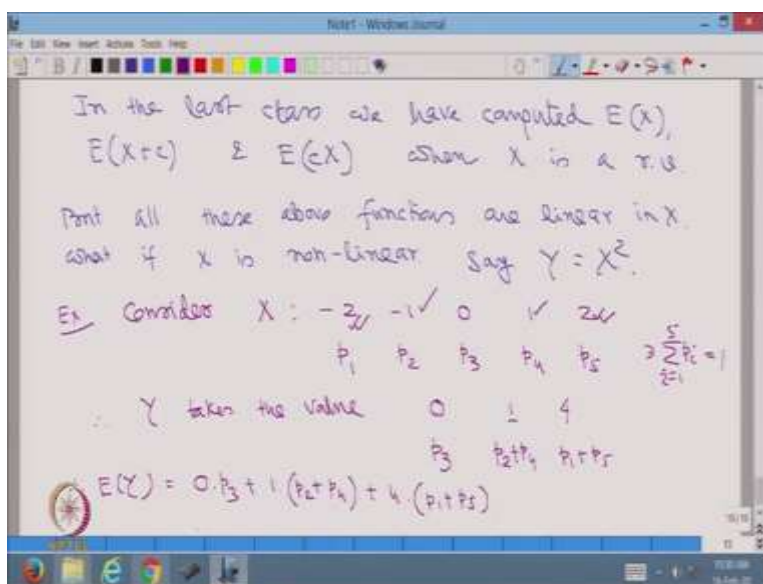 Note1 - Windows Journal
File Edit View Insert Actions Tools Help
In the last class we have computed E(X),
E(X+c) & E(cX) when X is a r.v.
But all these above functions are linear in X.
what if X is non-linear say Y = X².
Ex Consider X : -2 -1 ✓ 0 1 ✓ 2
p₁ p₂ p₃ p₄ p₅ ∋ ∑_{i=1}^{5} pᵢ = 1
∴ Y takes the value 0 1 4
p₃ p₂+p₄ p₁+p₅
E(Y) = 0.p₃ + 1.(p₂+p₄) + 4.(p₁+p₅)
NPTEL